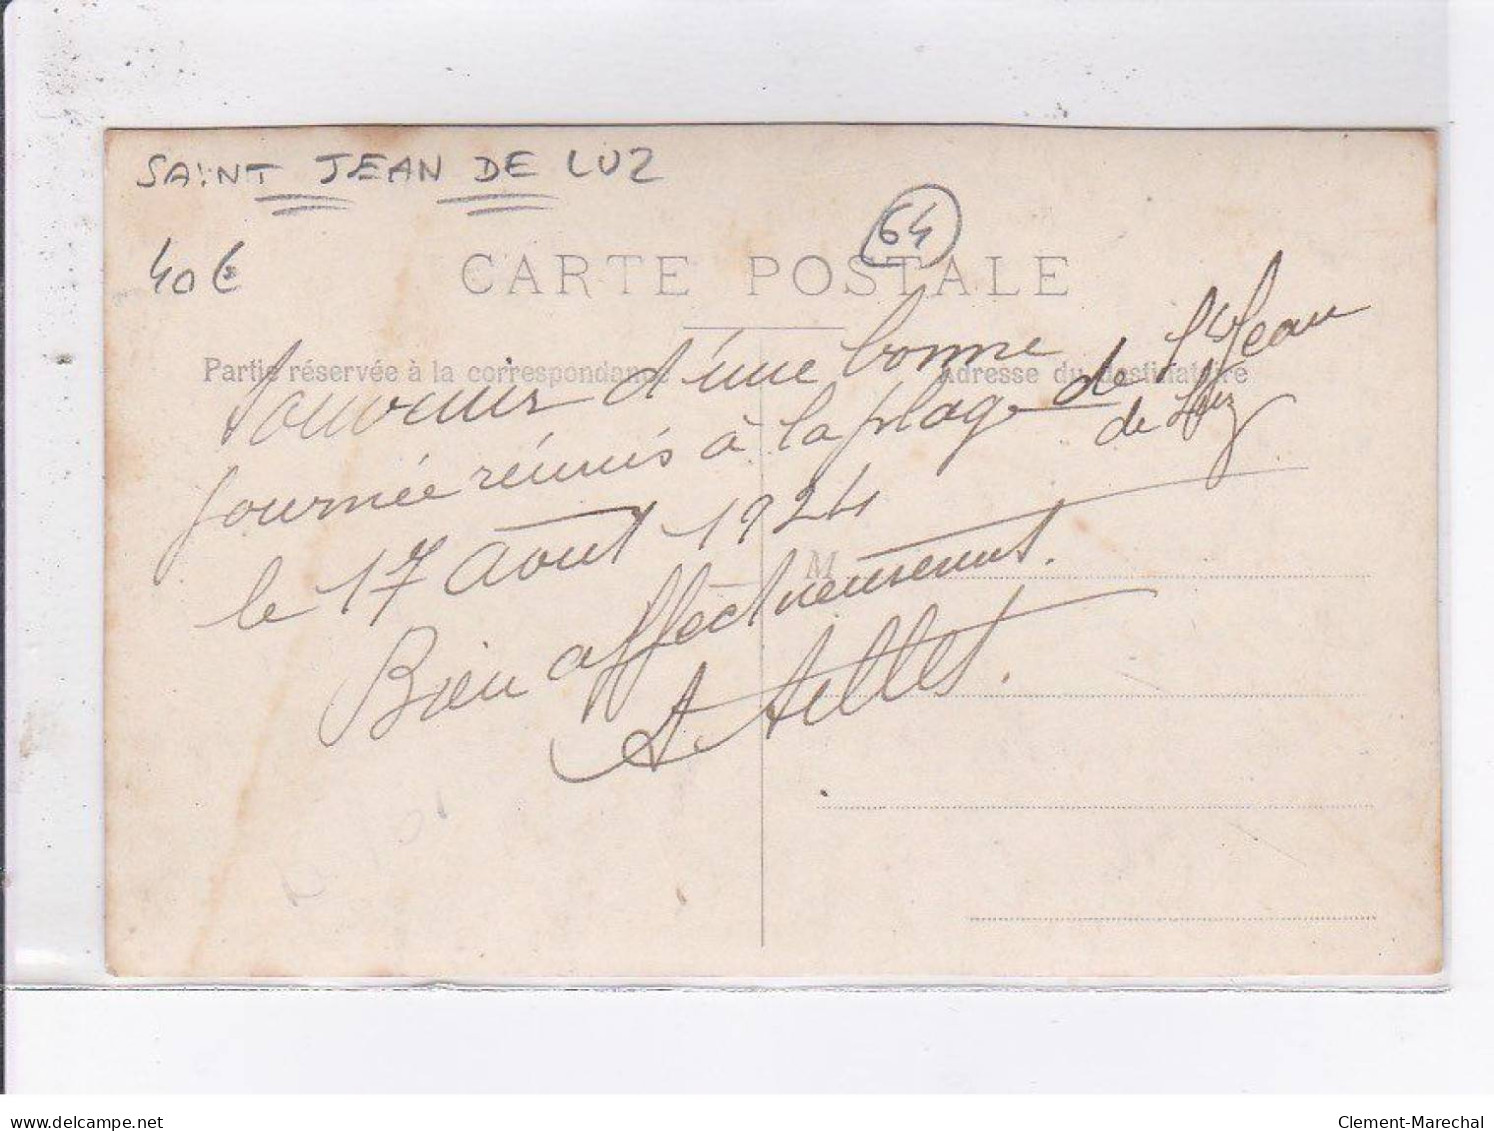 SAINT JEAN DE LUZ
64
40€
CARTE POSTALE
Partie réservée à la correspondance
Adresse du destinataire
Souvenir d'une bonne
journée réunis à la plage de St Jean
de Luz
le 17 août 1924
M
Bien affectueusement.
delcampe.net
Clement-Marechal